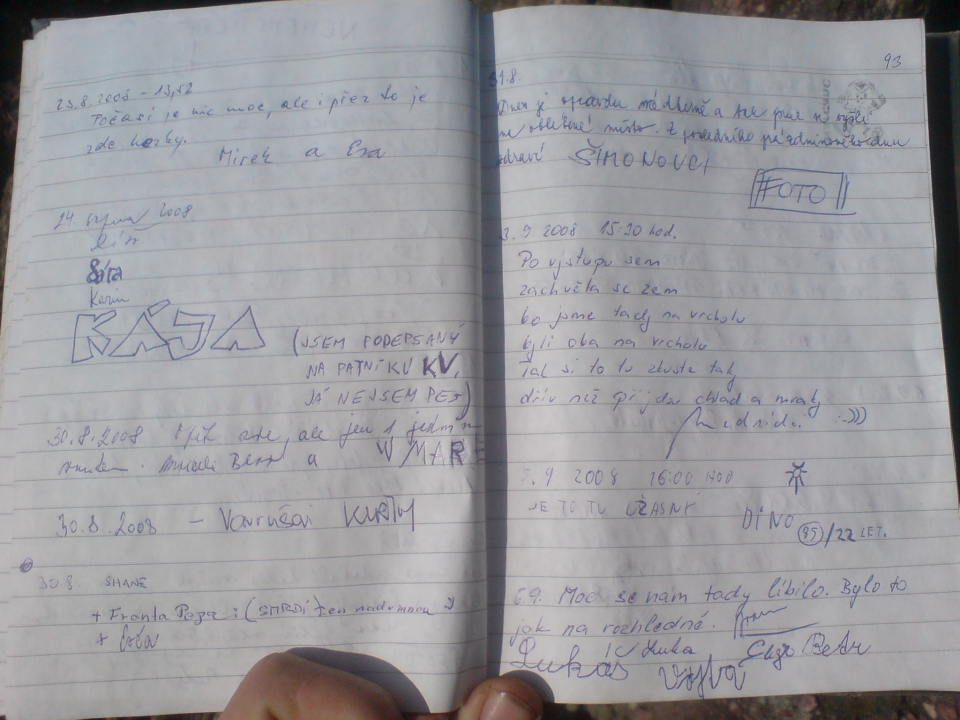 23.8.2008 - 13,52
Počasí je nic moc, ale i přez to je
zde hezky.
Mirek a Eva
24. srpna 2008
Sára
Karin
KÁJA
(JSEM PODEPSANÝ
NA PATNÍKU KV,
JÁ NEJSEM PES)
30.8.2008 zde, ale jen s jedním
a
30.8.2008 - Vavrušovi KURTY
30.8. SHANE
+ Franta Pepa : (SMRDÍ) ten
+
93
31.8.
Dnes je opravdu nádherně a tak jsme
na oblíbené místo. Z posledního prázdninového dnu
zdraví ŠIMONOVCI
FOTO
3.9 2008 15:30 hod.
Po výstupu sem
zachvěla se zem
bo jsme tady na vrcholu
byli oba na vrcholu
Tak si to tu zkuste taky
dřív než přijdou chlad a mraky
:-)))
3.9 2008 16:00 HOD
JE TO TU ÚŽASNÝ
DINO
85/22 LET.
6.9. Moc se nám tady líbilo. Bylo to
jak na rozhledně.
Lukáš Luka